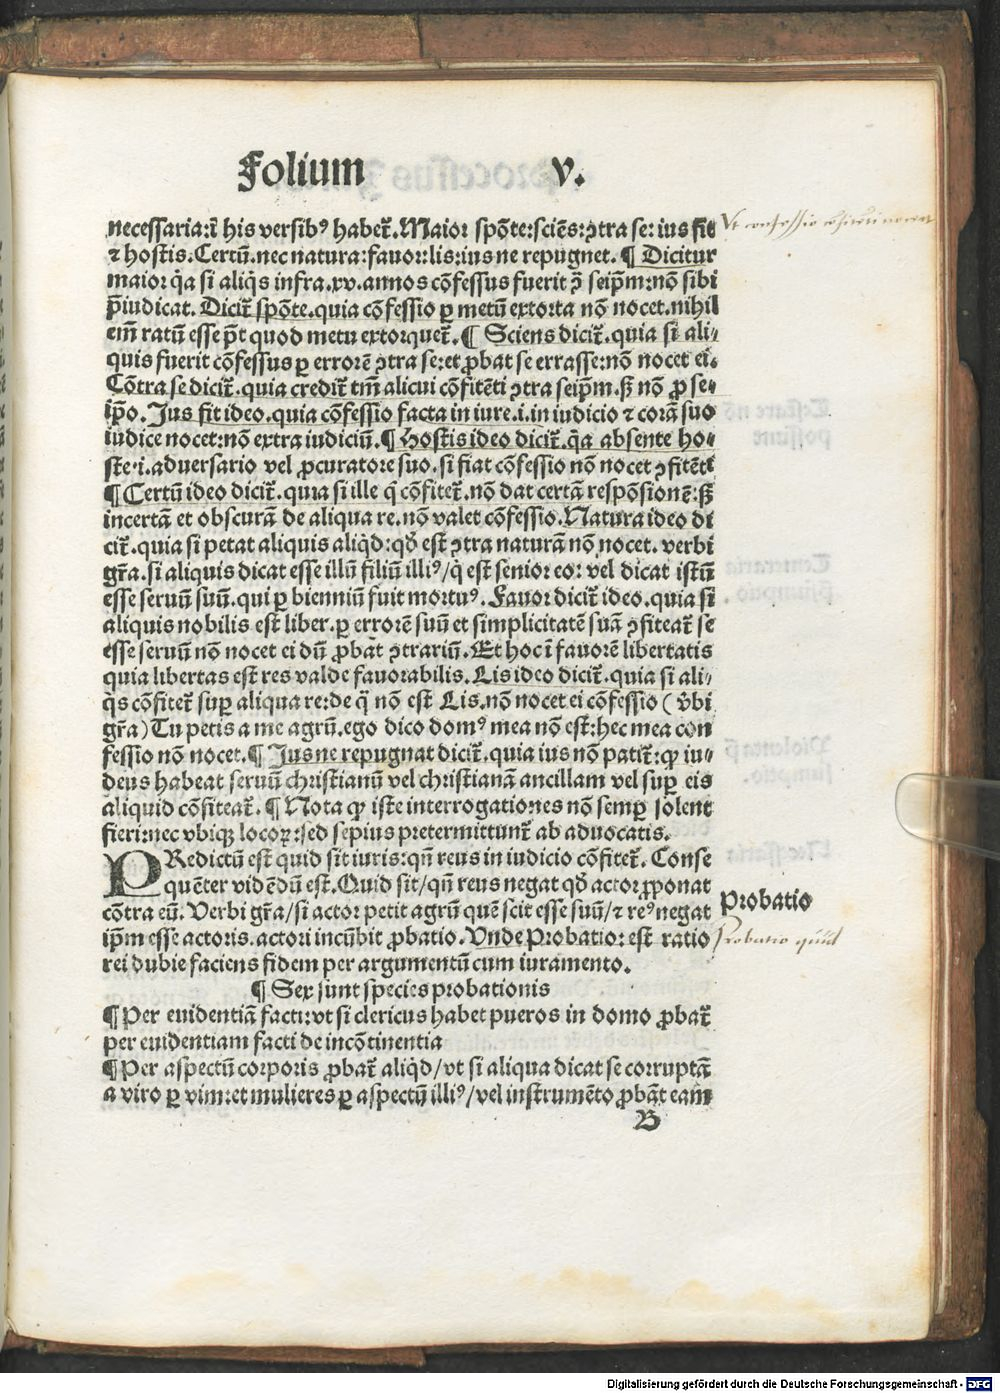 Folium V.
necessaria:ī his versibꝰ habet̃.Maior spõte:sciẽs:ꝯtra se:ius fit
⁊ hostis.Certũ.nec natura:fauor:lis:ius ne repugnet.¶ Dicitur
maior q̃a si aliq̃s infra.xv.annos cõfessus fuerit ꝯ̃ seip̃m:nõ sibi
p̃iudicat. Dicit̃ spõte.quia cõfessio ꝑ metũ extorta nõ nocet.nihil
em̃ ratũ esse põt quod metu extorquet̃.¶ Sciens dicit̃.quia si ali-
quis fuerit cõfessus ꝑ errorẽ ꝯtra se:et ꝓbat se errasse:nõ nocet ei.
Cõtra se dicit̃.quia credit̃ tm̃ alicui cõfitẽti ꝯtra seip̃m.sꝫ nõ ꝓ se-
ip̃o. Jus fit ideo.quia cõfessio facta in iure.i.in iudicio ⁊ corã suo
iudice nocet:nõ extra iudiciũ.¶ Hostis ideo dicit̃.q̃a absente ho-
ste.i.aduersario vel ꝓcuratore suo.si fiat cõfessio nõ nocet ꝯfitẽti
¶ Certũ ideo dicit̃.quia si ille q̃ cõfitet̃.nõ dat certã respõsionẽ:sꝫ
incertã et obscurã de aliqua re.nõ valet cõfessio.Natura ideo di
cit̃.quia si petat aliquis aliq̃d:qđ est ꝯtra naturã nõ nocet. verbi
gr̃a.si aliquis dicat esse illũ filiũ illiꝰ/q̃ est senior eo: vel dicat istũ
esse seruũ suũ.qui ꝑ bienniũ fuit mortuꝰ. Fauor dicit̃ ideo.quia si
aliquis nobilis est liber.ꝑ errorẽ suũ et simplicitatẽ suã ꝯfiteat̃ se
esse seruũ nõ nocet ei dũ ꝓbat ꝯtrariũ. Et hoc ĩ fauorẽ libertatis
quia libertas est res valde fauorabilis. Lis ideo dicit̃.quia si ali-
q̃s cõfitet̃ suꝑ aliqua re:de q̃ nõ est Lis.nõ nocet ei cõfessio (v̓bi
gr̃a) Tu petis a me agrũ.ego dico domꝰ mea nõ est:hec mea con
fessio nõ nocet.¶ Jus ne repugnat dicit̃.quia ius nõ patit̃:ꝙ iu-
deus habeat seruũ christianũ vel christianã ancillam vel suꝑ eis
aliquid cõfiteat̃.¶ Nota ꝙ iste interrogationes nõ semꝑ solent
fieri:nec vbiqꝫ locoꝝ:sed sepius pretermittunt̃ ab aduocatis.
PRedictũ est quid sit iuris:qñ reus in iudicio cõfitet̃. Conse
quẽter vidẽdũ est.Quid sit/qñ reus negat qđ actor ꝓponat
cõtra eũ. Verbi gr̃a/si actor petit agrũ quẽ scit esse suũ/⁊ reꝰ negat
ip̃m esse actoris.actori incũbit ꝓbatio.Vnde Probatio: est ratio
rei dubie faciens fidem per argumentũ cum iuramento.
¶ Sex sunt species probationis
¶ Per euidentiã facti:vt si clericus habet pueros in domo ꝓbat̃
per euidentiam facti de incõtinentia
¶ Per aspectũ corporis ꝓbat̃ aliq̃d/vt si aliqua dicat se corruptã
a viro ꝑ vim:et mulieres ꝑ aspectũ illiꝰ/vel instrumẽto ꝓbãt eam
B
Probatio
Probatio quid
Digitalisierung gefördert durch die Deutsche Forschungsgemeinschaft - DFG